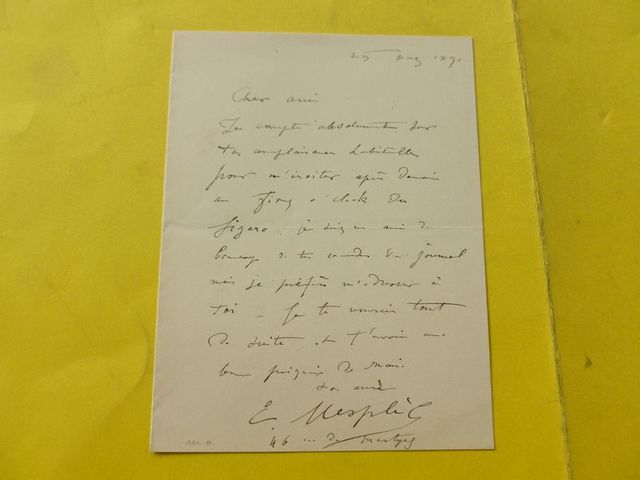 25 1891
Cher ami
Je compte absolument sur
ton complaisance habituelle
pour m'inviter après demain
au five o'clock du
figaro, je suis un ami de
beaucoup de tes du journal
mais je préfère m'adresser à
toi _ Je te tout
de suite, et t'envoie une
bonne poignée de main
ton ami
E Mesplès
46 des Martyrs